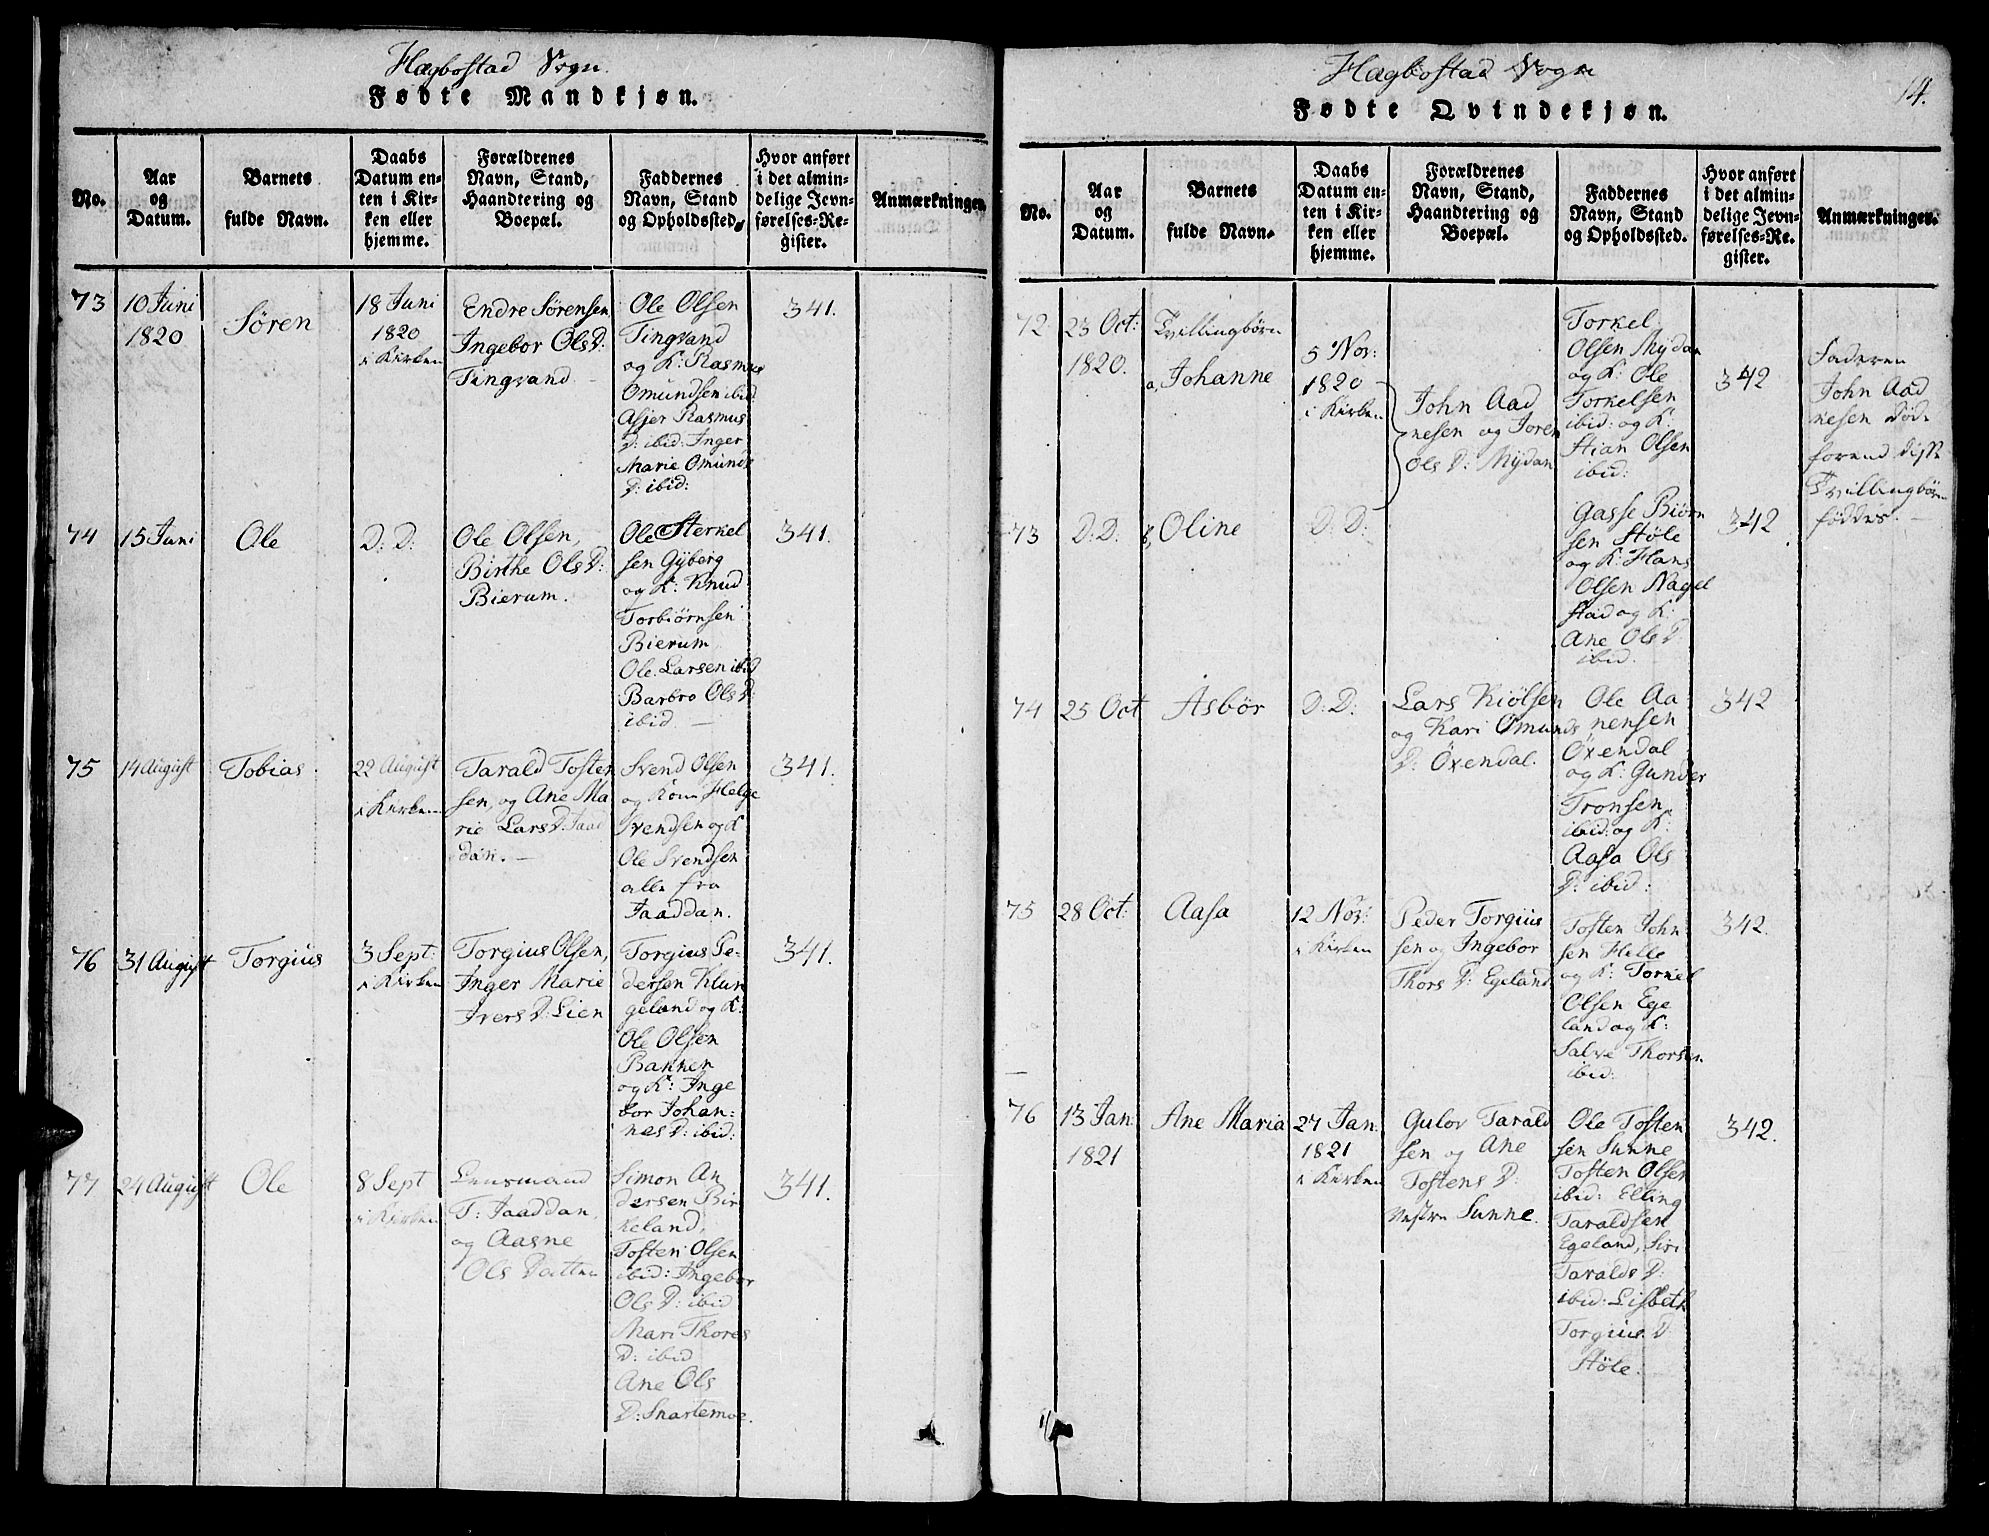 Hægbostad Sogn.
Fødte Mandkjøn.
No.
Aar
og
Datum.
Barnets
fulde Navn.
Daabs
Datum en-
ten i Kir-
ken eller
hjemme.
Forældrenes
Navn, Stand,
Haandtering og
Boepæl.
Faddernes
Navn, Stand
og Opholdssted.
Hvor anført
i det almin-
delige Jevn-
førelses-Re-
gister.
Anmærkninger.
73
10 Juni
1820
Søren
18 Juni
1820
i Kirken
Endre Sørensen
Ingebor Ols D:
Tingvand
Ole Olsen
Tingvand
og K: Rasmus
Omundsen ibid
Asjer Rasmus
D: ibid: Inger
Marie Omunds
D: ibid:
341.
74
15 Juni
Ole
D: D:
Ole Olsen,
Birthe Ols D:
Bierum.
Ole Sterkel
sen Gyberg
og K: Knud
Torbiørnsen
Bierum
Ole Larsen ibid
Barbro Ols D:
ibid. —
341.
75
14 August
Tobias.
22 August
i Kirken
Tarald Tosten
sen, og Ane Ma
rie Lars D: Jaad
dan. —
Svend Olsen
og Kone Helge
Svendsen og K
Ole Svendsen
alle fra
Jaaddan.
341.
76
31 August
Torgius
3 Sept:
i Kirken
Torgius Olsen,
Inger Marie
Ivers D: Lien
Torgius Pe-
dersen Klun
geland og K:
Ole Olsen
Bakken
og K: Inge
bor Johan:
nes D: ibid:
341.
77
24 August
Ole
8 Sept
i Kirken
Lensmand
T: Jaaddan,
og Aasne
Ols Datter
Simon An
dersen Bir
keland,
Tosten Olsen
ibid: Ingebor
Ols D: ibid
Mari Thores
D: ibid
Ane Ols
D: Snartemoe.
341.
Hægbostad Sogn
14.
Fødte Qvindekjøn.
No.
Aar
og
Datum.
Barnets
fulde Navn.
Daabs
Datum en-
ten i Kir-
ken eller
hjemme.
Forældrenes
Navn, Stand,
Haandtering og
Boepæl.
Faddernes
Navn, Stand
og Opholdssted.
Hvor anført
i det almin-
delige Jevn-
førelses-Re-
gister.
Anmærkninger.
72
23 Oct:
1820.
Tvillingbørn
a, Johanne
5 Nov:
1820
i Kirken
John Aad
nesen og Joren
Ols D: Mydan
Torkel
Olsen Mydan
og K: Ole
Torkelsen
ibid: og K.
Stian Olsen
ibid:
342
Faderen
John Aad
nesen død
forend disse
Tvillingbørn
föddes. —
73
D: D:
b, Oline
D: D:
Gasse Biørn
sen Støle
og K: Hans
Olsen Nagel
stad og K:
Ane Ols D
ibid.
342
74
25 Oct
Asbør
D: D:
Lars Kiølsen
og Kari Omunds
D: Öxendal.
Ole Aa
nensen
Öxendal
og K: Gunder
Tronsen
ibid: og K:
Aasa Ols
D: ibid:
342
75
28 Oct:
Aasa
12 Nov:
i Kirken
Peder Torgius
sen og Ingebor
Thors D: Egeland
Tosten John
sen Helle
og K: Torkel
Olsen Ege
land og K:
Salve Thorsen
ibid:
342.
76
13 Jan:
1821
Ane Maria
27 Jan:
1821
i Kirken
Gulov Tarald
sen og Ane
Tostens D:
Vestre Sunne.
Ole Tosten
sen Sunne
Tosten Olsen
ibid: Elling
Taraldsen
Egeland, Siri
Taralds D:
ibid: Lisbeth
Torgius D
Støle.
342.